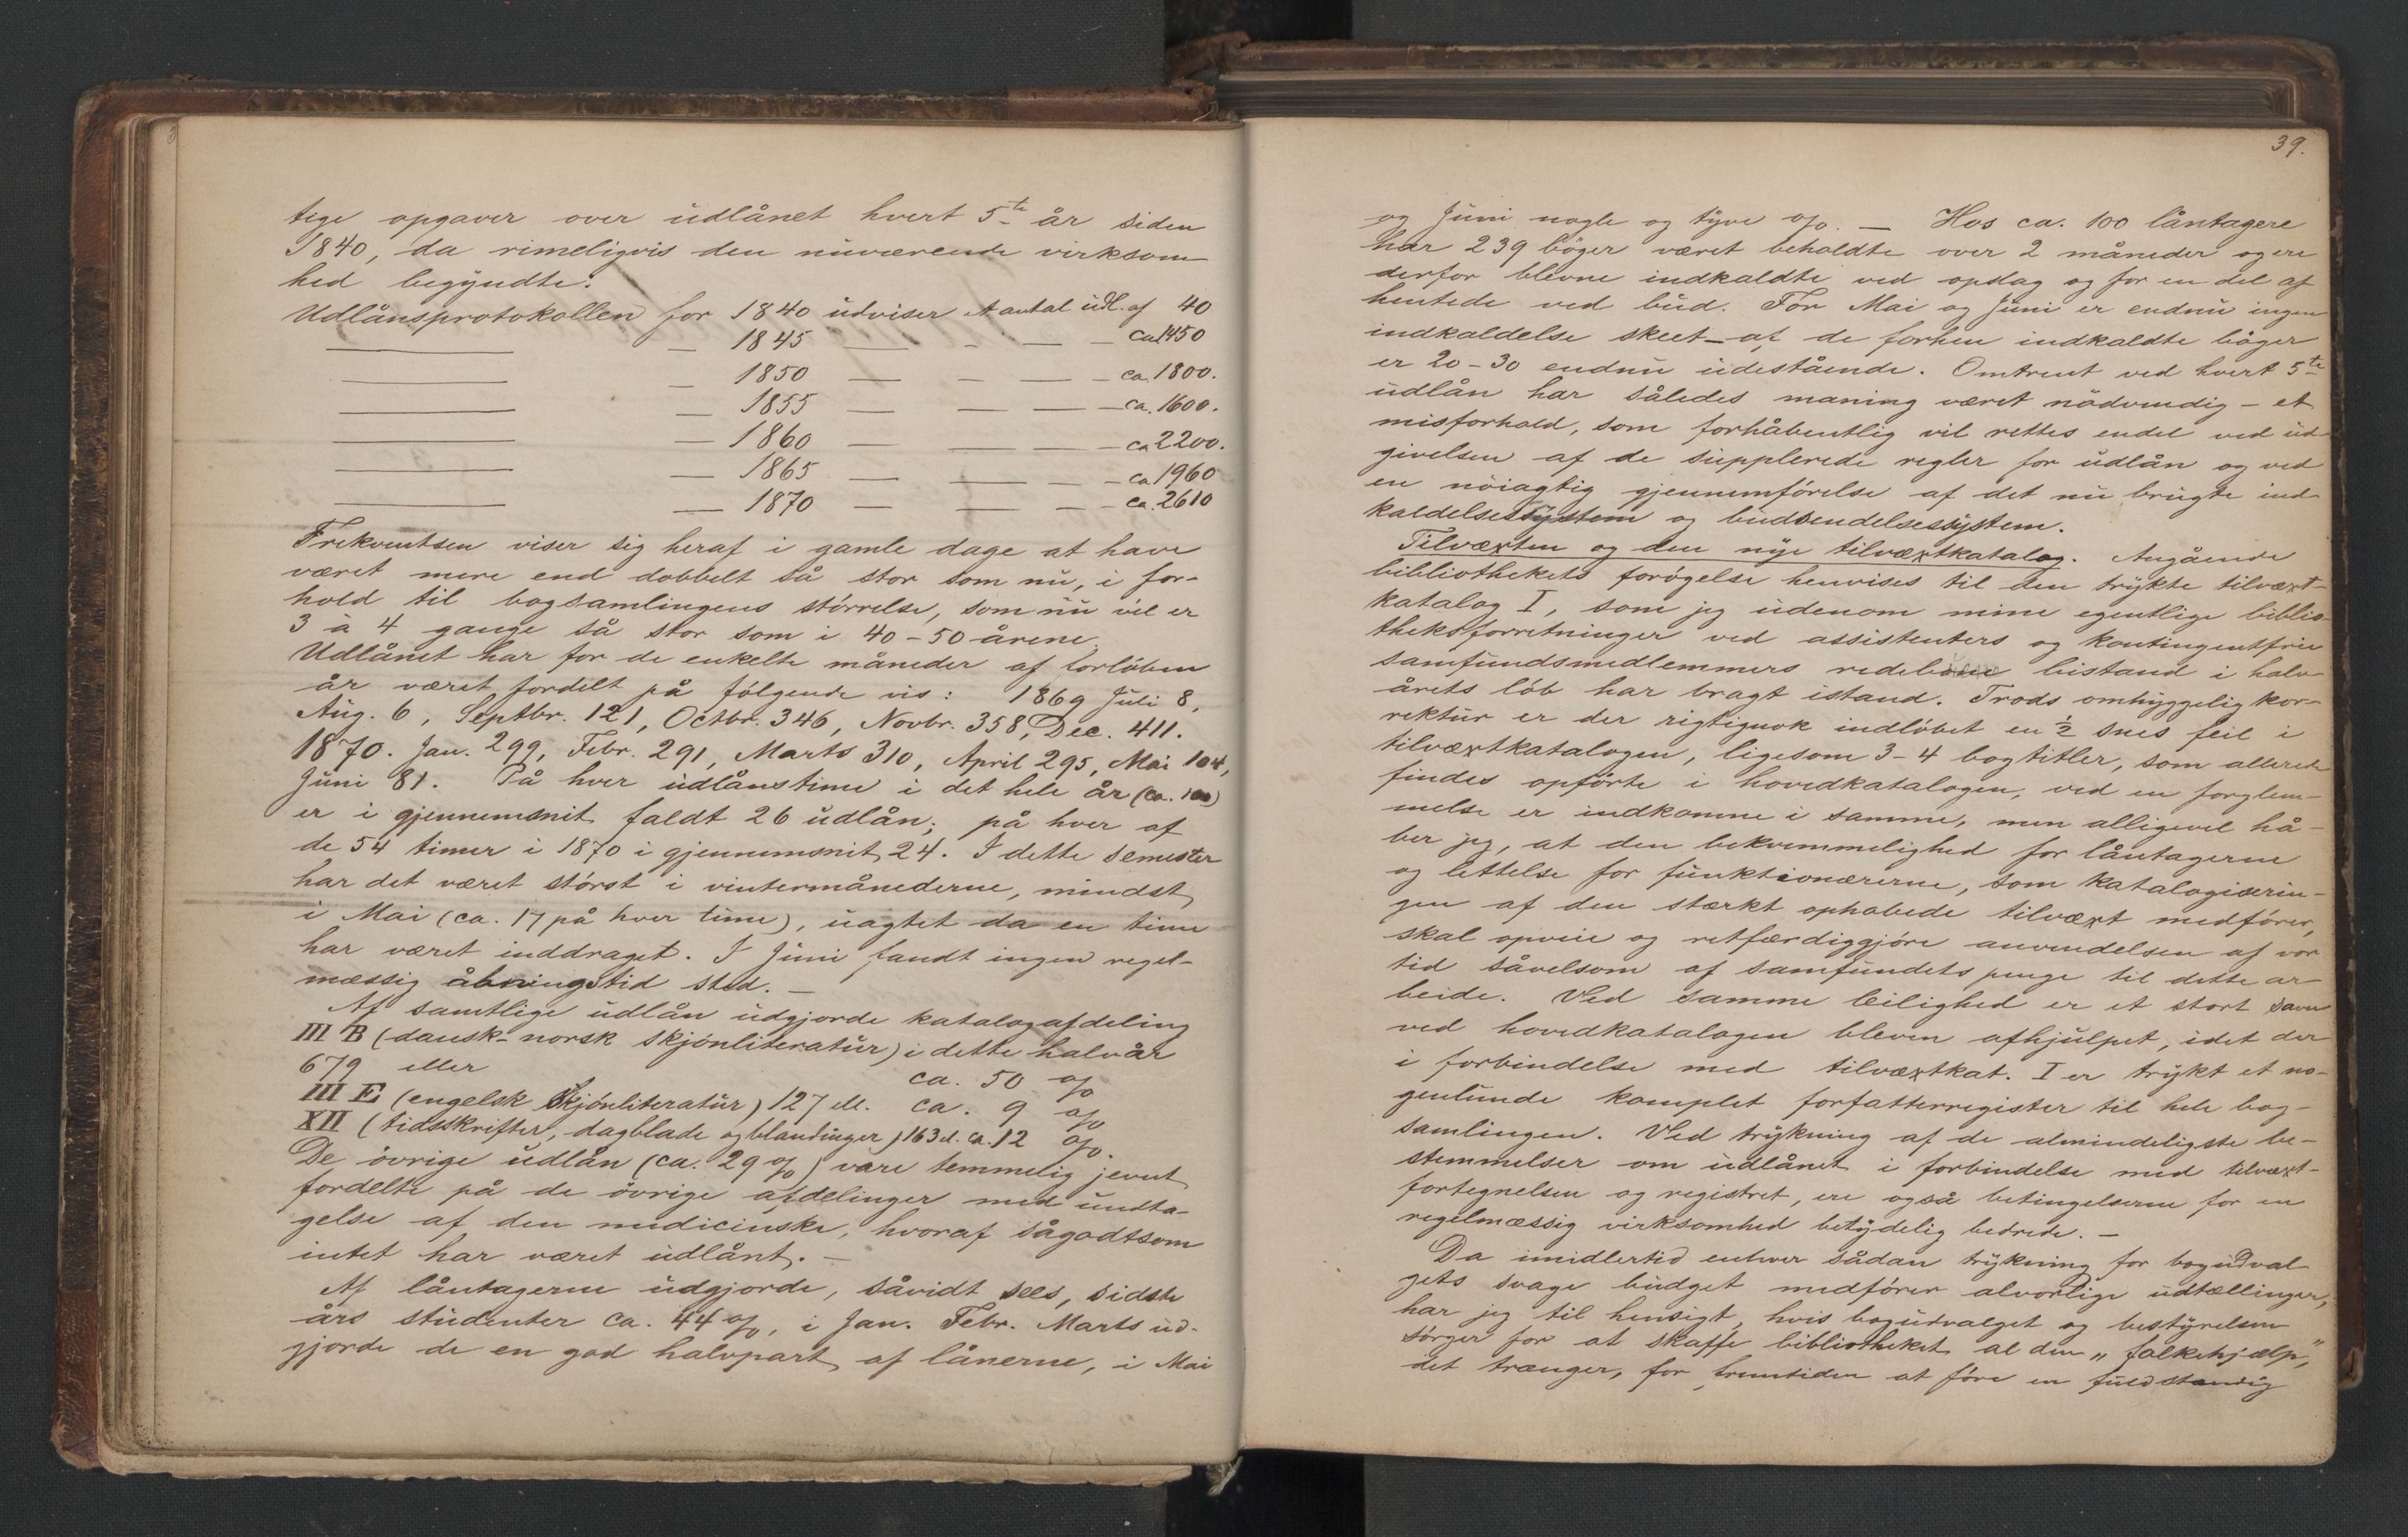 tige opgaver over udlånet hvert 5te år siden
1840, da rimeligvis den nuværende virksom-
hed begyndte:
Udlånsprotokollen for 1840 udviser Aantal udl. af 40
— — 1845 — - — - ca 1450
— — 1850 — — — - ca. 1800.
— — 1855 — — — - ca. 1600.
— — 1860 — — — - ca 2200.
— — 1865 — — — - ca 1960
— — 1870 — — — - ca. 2610
Frekventsen viser sig heraf i gamle dage at have
været mere end dobbelt så stor som nu, i for-
hold til bogsamlingens störrelse, som nu vil er
3 a 4 gange så stor som i 40-50 årene.
Udlånet har for de enkelte måneder af forlöben
år været fordelt på fölgende vis: 1869 Juli 8,
Aug. 6, Septbr. 121, Octbr. 346, Novbr. 358, Dec. 411.
1870. Jan. 299, Febr. 291, Marts 310, April 295, Mai 104,
Juni 81. På hver udlånstime i det hele år (ca. 100)
er i gjennemsnit faldt 26 udlån; på hver af
de 54 timer i 1870 i gjennemsnit 24. I dette semester
har det været störst i vintermånederne, mindst
i Mai (ca. 17 på hver time), uagtet da en time
har været inddraget. I Juni fandt ingen regel-
mæssig åbningstid sted. —
Af samtlige udlån udgjorde katalogafdeling
III B (dansk-norsk skjönliteratur) i dette halvår
679 eller ca. 50 %
III E (engelsk Skjönliteratur) 127 ell. ca. 9 %
XII (tidsskrifter, dagblade og blandinger) 163 el. ca. 12 %.
De övrige udlån (ca. 29 %) vare temmelig jevnt
fordelte på de övrige afdelinger med undta-
gelse af den medicinske, hvoraf sågodtsom
intet har været udlånt. —
Af låntagerne udgjorde, såvidt sees, sidste
års studenter ca. 44 %, i Jan. Febr. Marts ud-
gjorde de en god halvpart af lånerne, i Mai
39.
og Juni nogle og tyve %. — Hos ca. 100 låntagere
har 239 böger været beholdte over 2 måneder og ere
derfor blevne indkaldte ved opslag og for en del af
hentede ved bud. For Mai og Juni er endnu ingen
indkaldelse skeet — af de forhen indkaldte böger
er 20-30 endnu udestående. Omtrent ved hvert 5te
udlån har således maning været nödvendig — et
misforhold, som forhåbentlig vil rettes endel ved ud-
givelsen af de supplerede regler for udlån og ved
en nöiagtig gjennemförelse af det nu brugte ind-
kaldelsessystem og budsendelsessystem.
Tilvæxten og den nye tilvæxtkatalog. Angående
bibliothekets forögelse henvises til den trykte tilvæxt-
katalog I, som jeg udenom mine egentlige biblio-
theksforretninger ved assistenters og kontingentfrie
samfundsmedlemmers redebone bistand i halv-
årets löb har bragt istand. Trods omhyggelig kor-
rektur er der rigtignok indlöbet en ½ snes feil i
tilvæxtkatalogen, ligesom 3-4 bogtitler, som allerede
findes opförte i hovedkatalogen, ved en forglem-
melse er indkomne i samme, men alligevel hå-
ber jeg, at den bekvemmelighed for låntagerne
og lettelse for funktionærerne, som katalogiserin-
gen af den stærkt ophobede tilvæxt medförer,
skal opveie og retfærdiggjöre anvendelsen af vor
tid såvelsom af samfundets penge til dette ar-
beide. Ved samme leilighed er et stort savn
ved hovedkatalogen bleven afhjulpet, idet der
i forbindelse med tilvæxtkat. I er trykt et no-
genlunde komplet forfatterregister til hele bog-
samlingen. Ved trykning af de almindeligste be-
stemmelser om udlånet i forbindelse med tilvæxt-
fortegnelsen og registret, ere også betingelserne for en
regelmæssig virksomhed betydelig bedrede. —
Da imidlertid enhver sådan trykning for bogudval-
gets svage budget medförer alvorlige udtællinger,
har jeg til hensigt, hvis bogudvalget og bestyrelsen
sörger for at skaffe bibliotheket al den „falkehjælp,"
det trænger, for fremtiden at före en fuldstændig